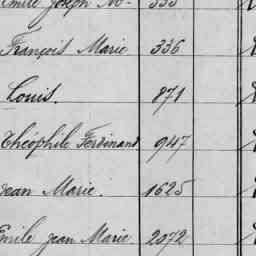 Emile Joseph M- 335
François Marie 336
Louis. 871
Théophile Ferdinand 947
Jean Marie. 1625
Emile Jean Marie. 2072